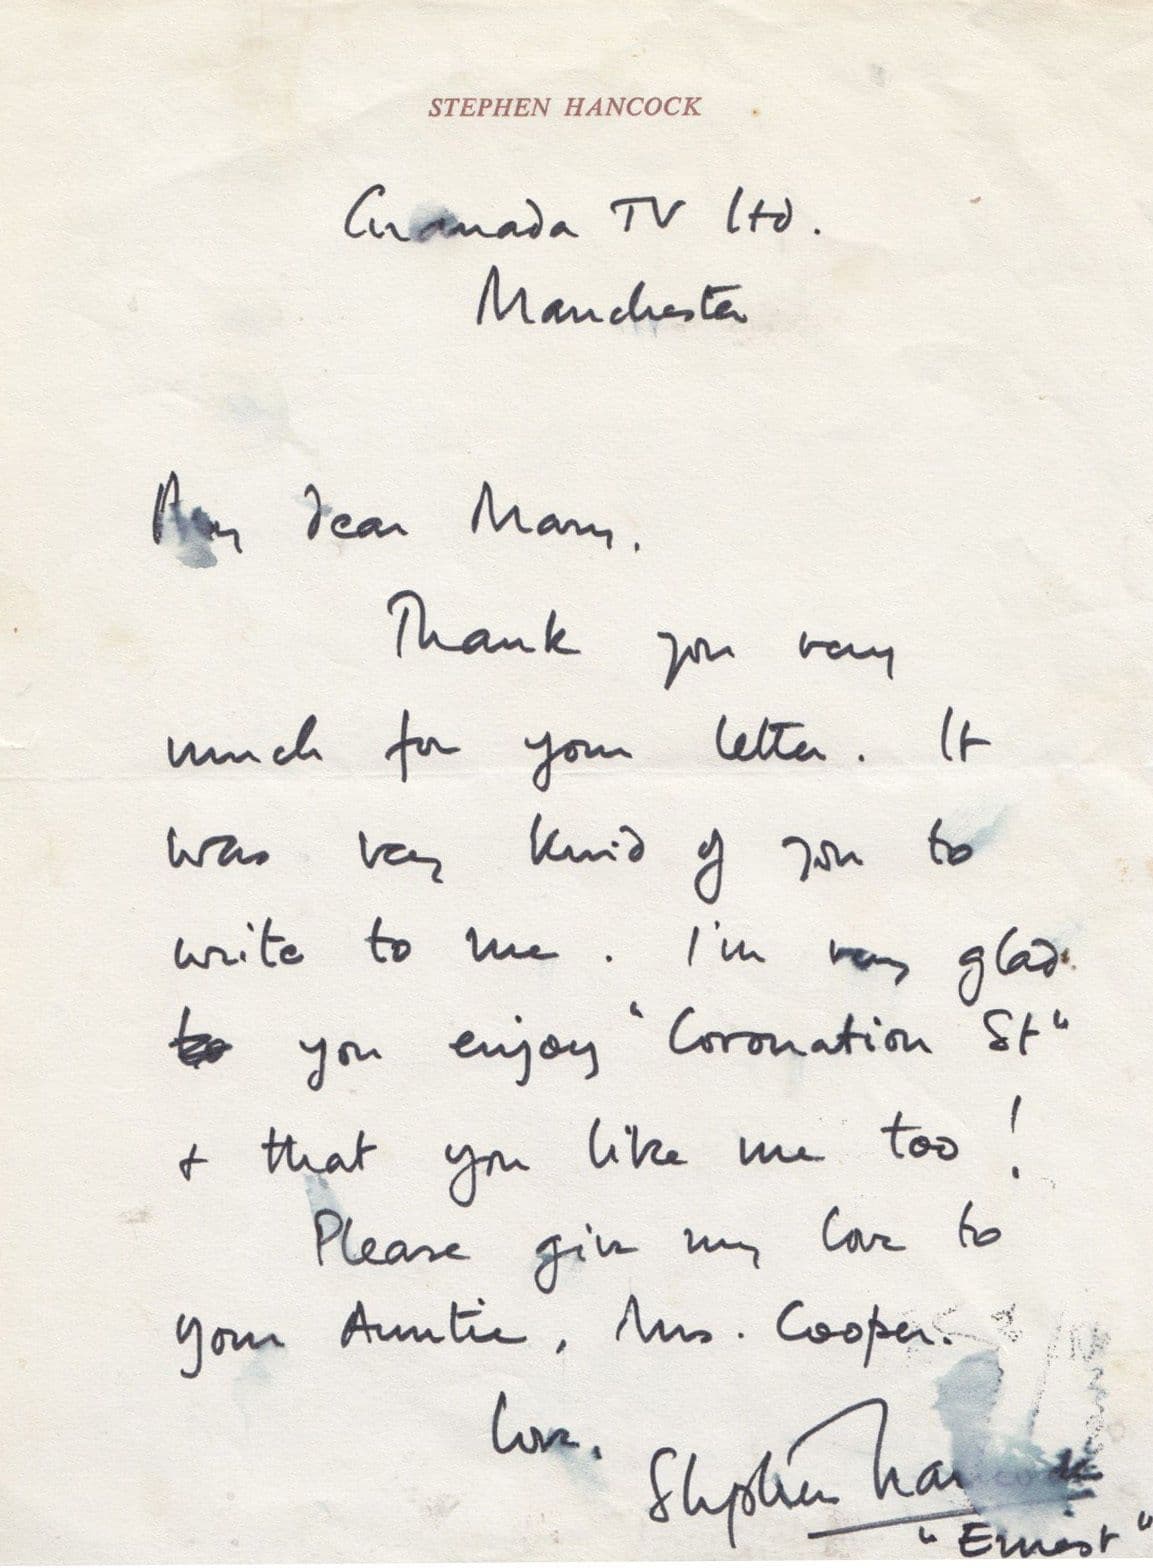 STEPHEN HANCOCK
Granada TV Ltd.
Manchester
My dear Mary,
Thank you very
much for your letter. It
was very kind of you to
write to me. I'm very glad
to you enjoy "Coronation St"
& that you like me too!
Please give my love to
your Auntie, Mrs. Cooper.
Love,
Stephen Hancock
"Ernest"